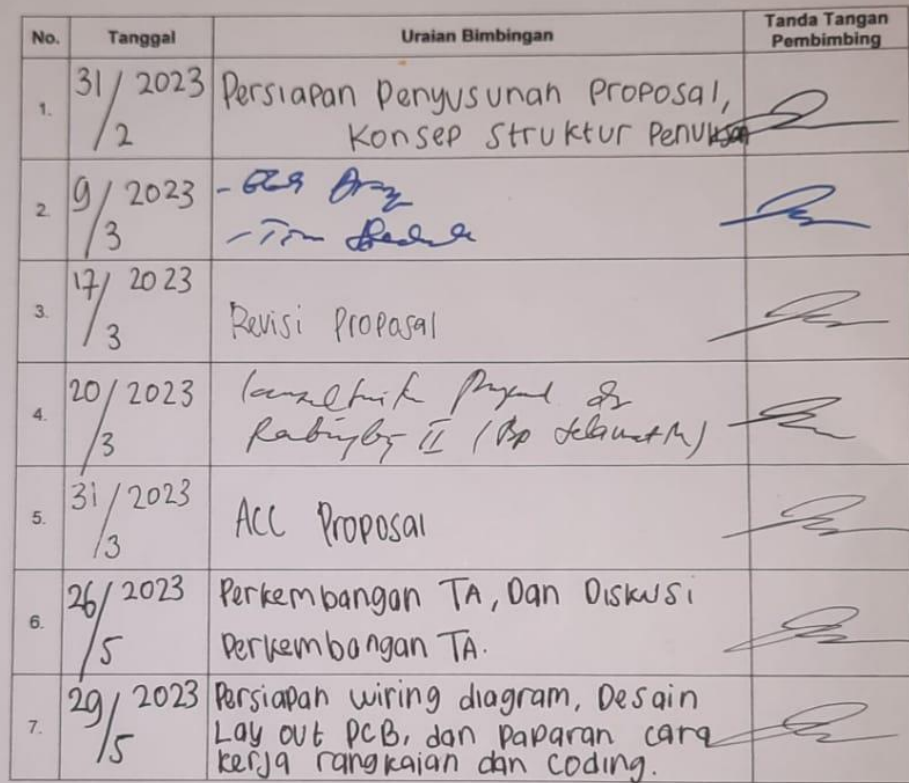 No. Tanggal Uraian Bimbingan Tanda Tangan Pembimbing
1. 31/2 2023 Persiapan Penyusunan Proposal,
Konsep Struktur Penulisan
2. 9/3 2023 -
- Tim
3. 17/3 2023 Revisi Proposal
4. 20/3 2023
II (Bp Selamat M)
5. 31/3 2023 ACC Proposal
6. 26/5 2023 Perkembangan TA, Dan Diskusi
Perkembangan TA.
7. 29/5 2023 Persiapan wiring diagram, Desain
Lay out PCB, dan Paparan cara
kerja rangkaian dan coding.